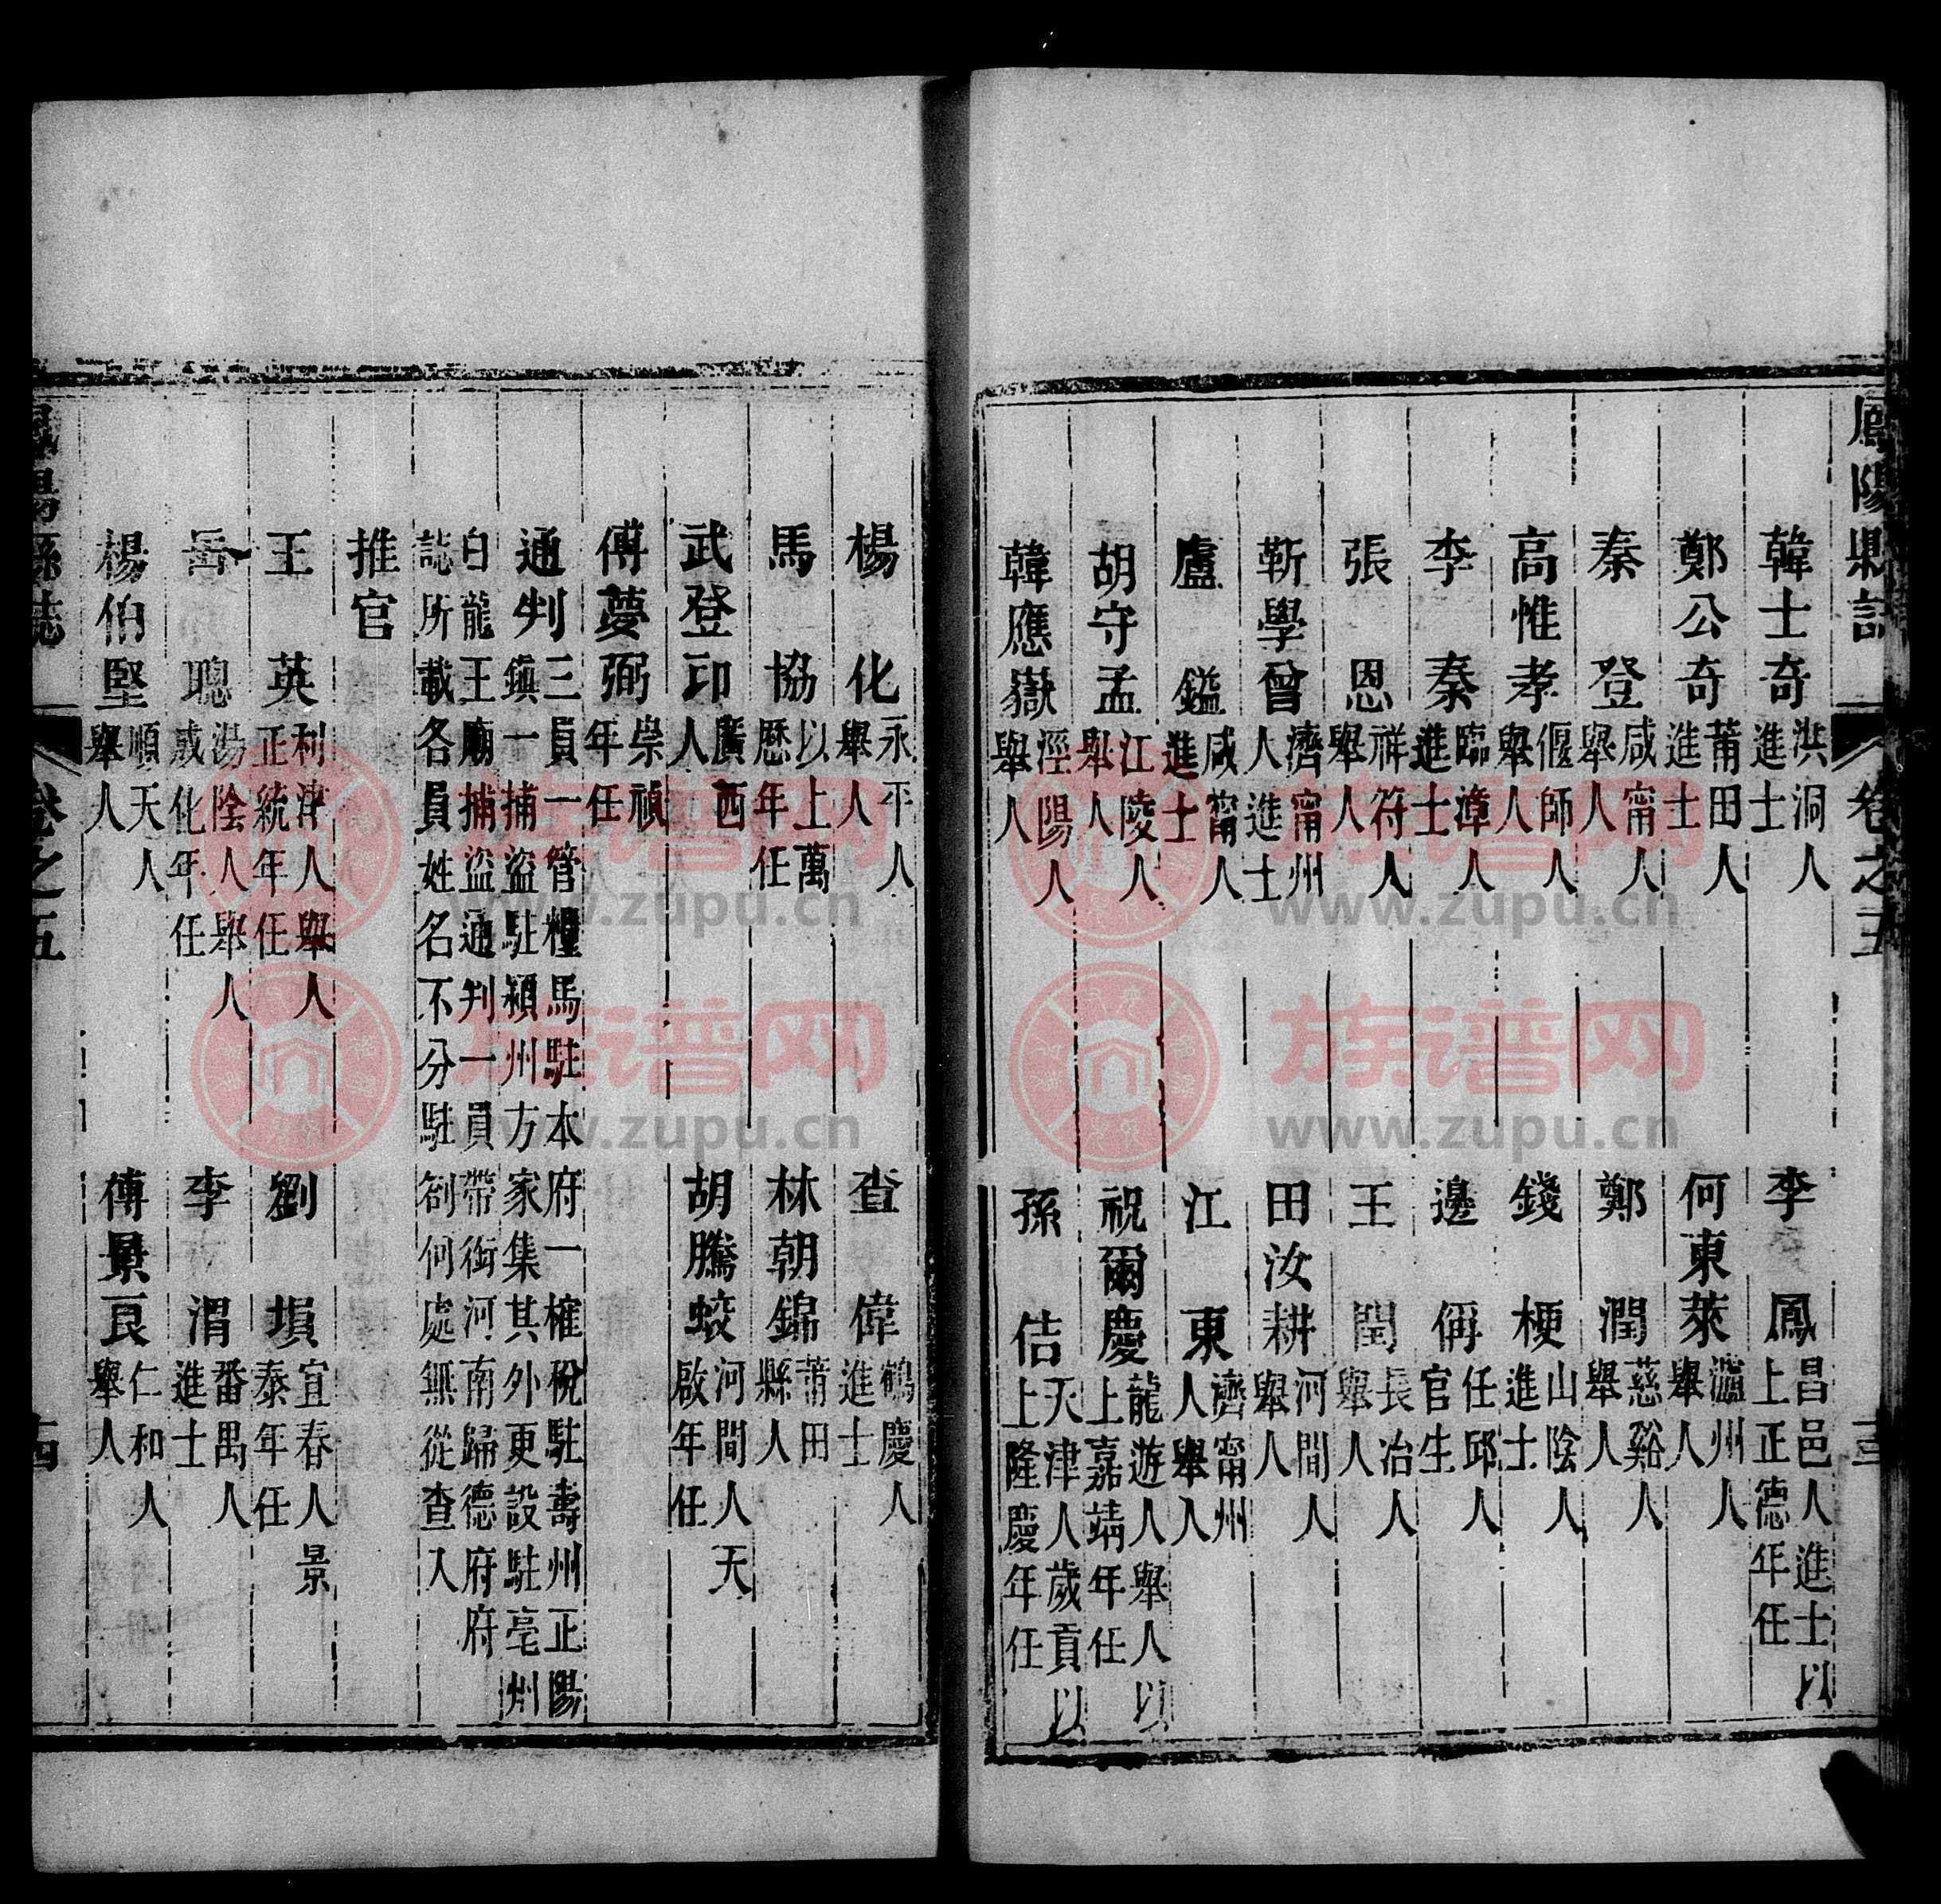 鳳陽縣誌 卷之五 十三
韓士奇 洪洞人進士 李鳳 昌邑人進士以上正德年任
鄭公奇 莆田人進士 何東萊 瀘州人舉人
秦登 咸甯人舉人 鄭潤 慈谿人舉人
高惟孝 偃師人舉人 錢梗 山陰人進士
李秦 臨漳人進士 邊侢 任邱人官生
張恩 祥符人舉人 王閏 長冶人舉人
靳學曾 濟甯州人進士 田汝耕 河間人舉人
盧鎰 咸甯人進士 江東 濟甯州人舉人
胡守孟 江陵人舉人 祝爾慶 龍遊人舉人以上嘉靖年任
韓應嶽 涇陽人舉人 孫佶 天津人歲貢以上隆慶年任
楊化 永平人舉人 查偉 鶴慶人進士
馬協 以上萬歷年任 林朝錦 莆田縣人
武登印 廣西人 胡騰蛟 河間人天啟年任
傅夢弼 崇禎年任
通判 三員一管糧馬駐本府一榷稅駐壽州正陽鎮一捕盜駐潁州方家集其外更設駐亳州
白龍王廟捕盜通判一員帶銜河南歸德府府誌所載各員姓名不分駐劄何處無從查入
推官
王英 利津人舉人正統年任 劉塤 宜春人景泰年任
岳聰 湯陰人舉人成化年任 李渭 番禺人進士
楊伯堅 順天人舉人 傅景良 仁和人舉人
鳳陽縣誌 卷之五 十四
族谱网
www.zupu.cn
族谱网
www.zupu.cn
族谱网
www.zupu.cn
族谱网
www.zupu.cn